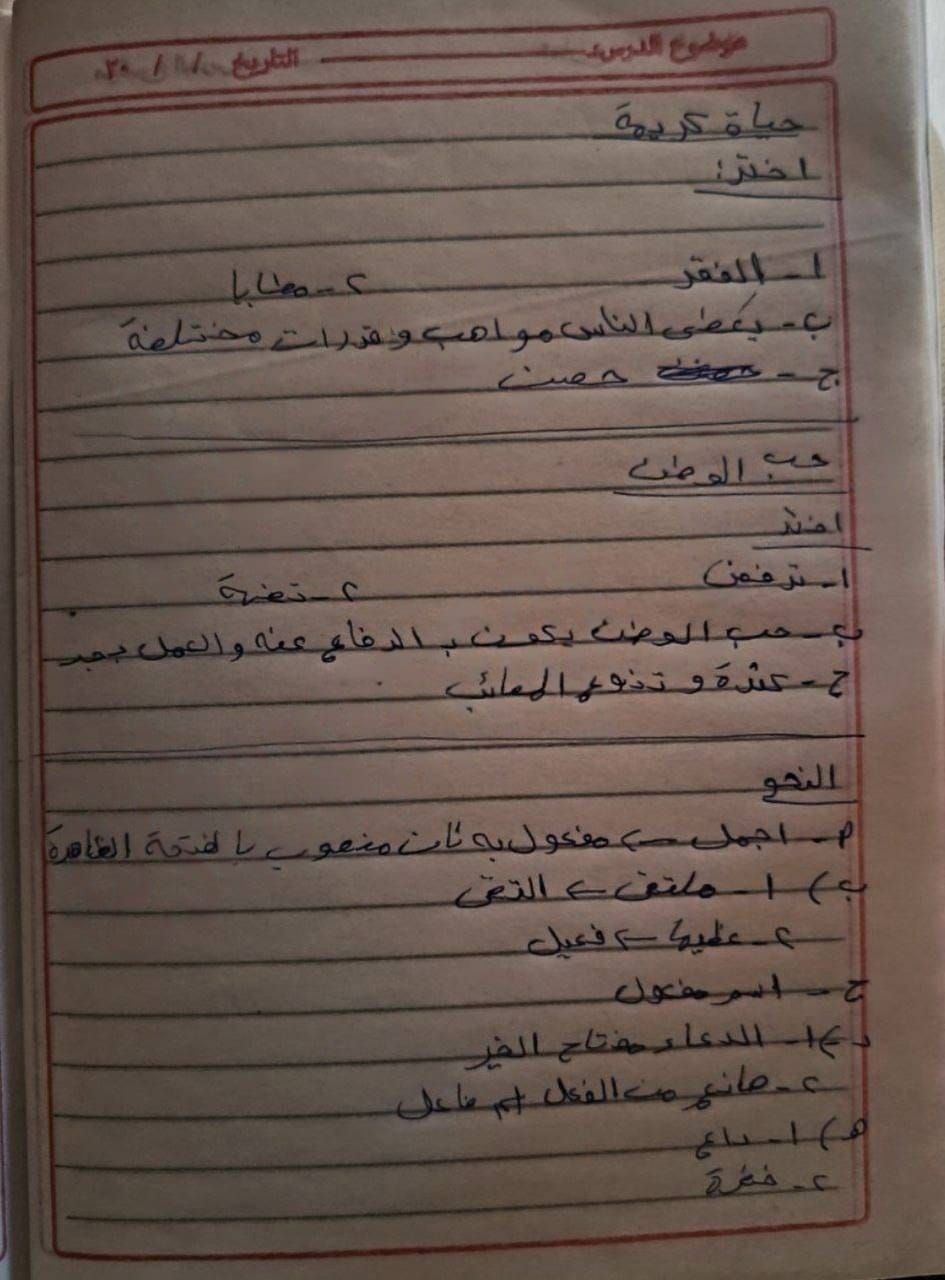 موضوع الدرس: التاريخ / / ٢٠
حياة كريمة
اختر:
١ - الفقر ٢ - مطايا
ب - يعطى الناس مواهب وقدرات مختلفة
ج - حصن
حب الوطن
اختر
١ - ترفض ٢ - تضحية
ب - حب الوطن يكون بـ الدفاع عنه والعمل بجد
ج - كثرة و تنوع المصائب
النحو
أ - اجمل ← مفعول به ثان منصوب بالفتحة الظاهرة
ب) ١ - ملتقى ← التقى
٢ - عظيما ← فعيل
ج - اسم مفعول
د) ١ - الدعاء مفتاح الخير
٢ - صانع من الفعل اسم فاعل
هـ) ١ - داع
٢ -